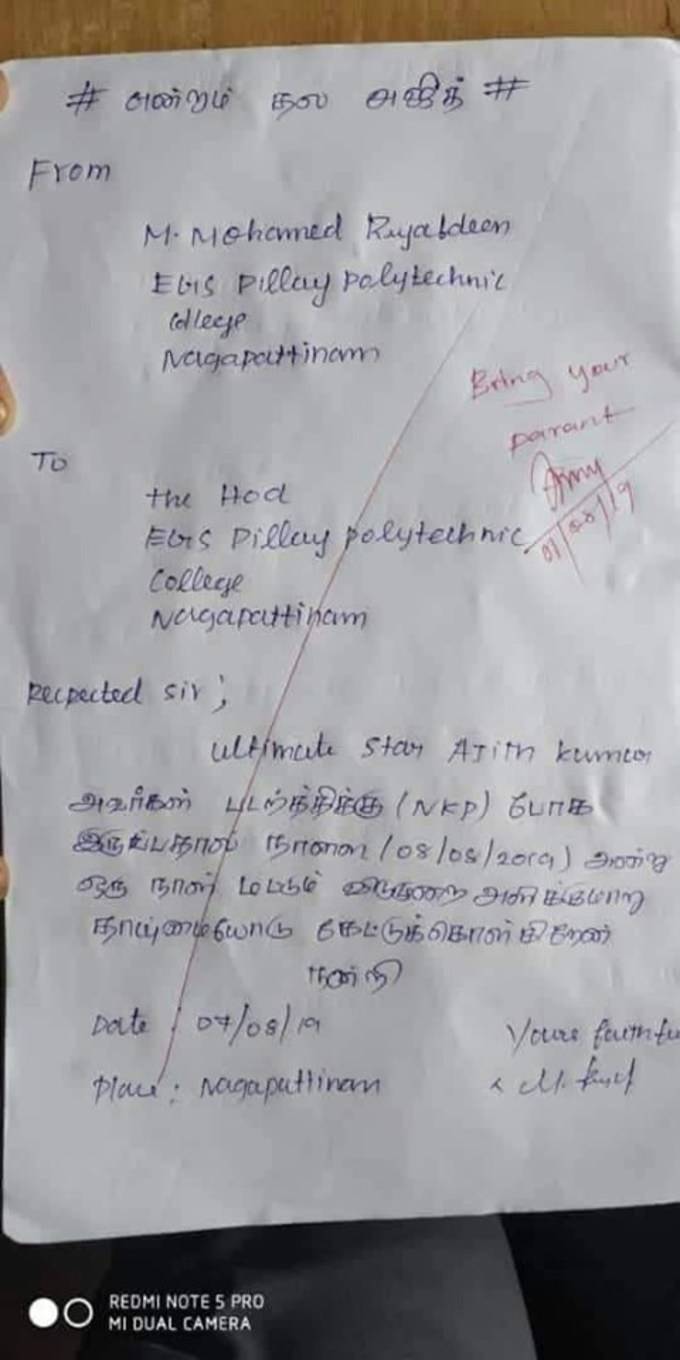 # என்றும் தல அஜித் #
From
M. Mohamed Riyasdeen
EGS Pillay polytechnic
college
Nagapattinam
Bring your
parant
07/08/19
To
the Hod
EGS Pillay polytechnic
College
Nagapattinam
Recpected sir ;
Ultimate Star Ajith kumar
அவர்கள் படத்திற்க்கு (NKP) போக
இருப்பதால் நாளை (08/08/2019) அன்று
ஒரு நாள் மட்டும் விடுமுறை அளிக்குமாறு
தாய்மையோடு கேட்டுக்கொள்கிறேன்
நன்றி
Date : 07/08/19
Yours faithfu
Place : Nagapattinam
REDMI NOTE 5 PRO
MI DUAL CAMERA